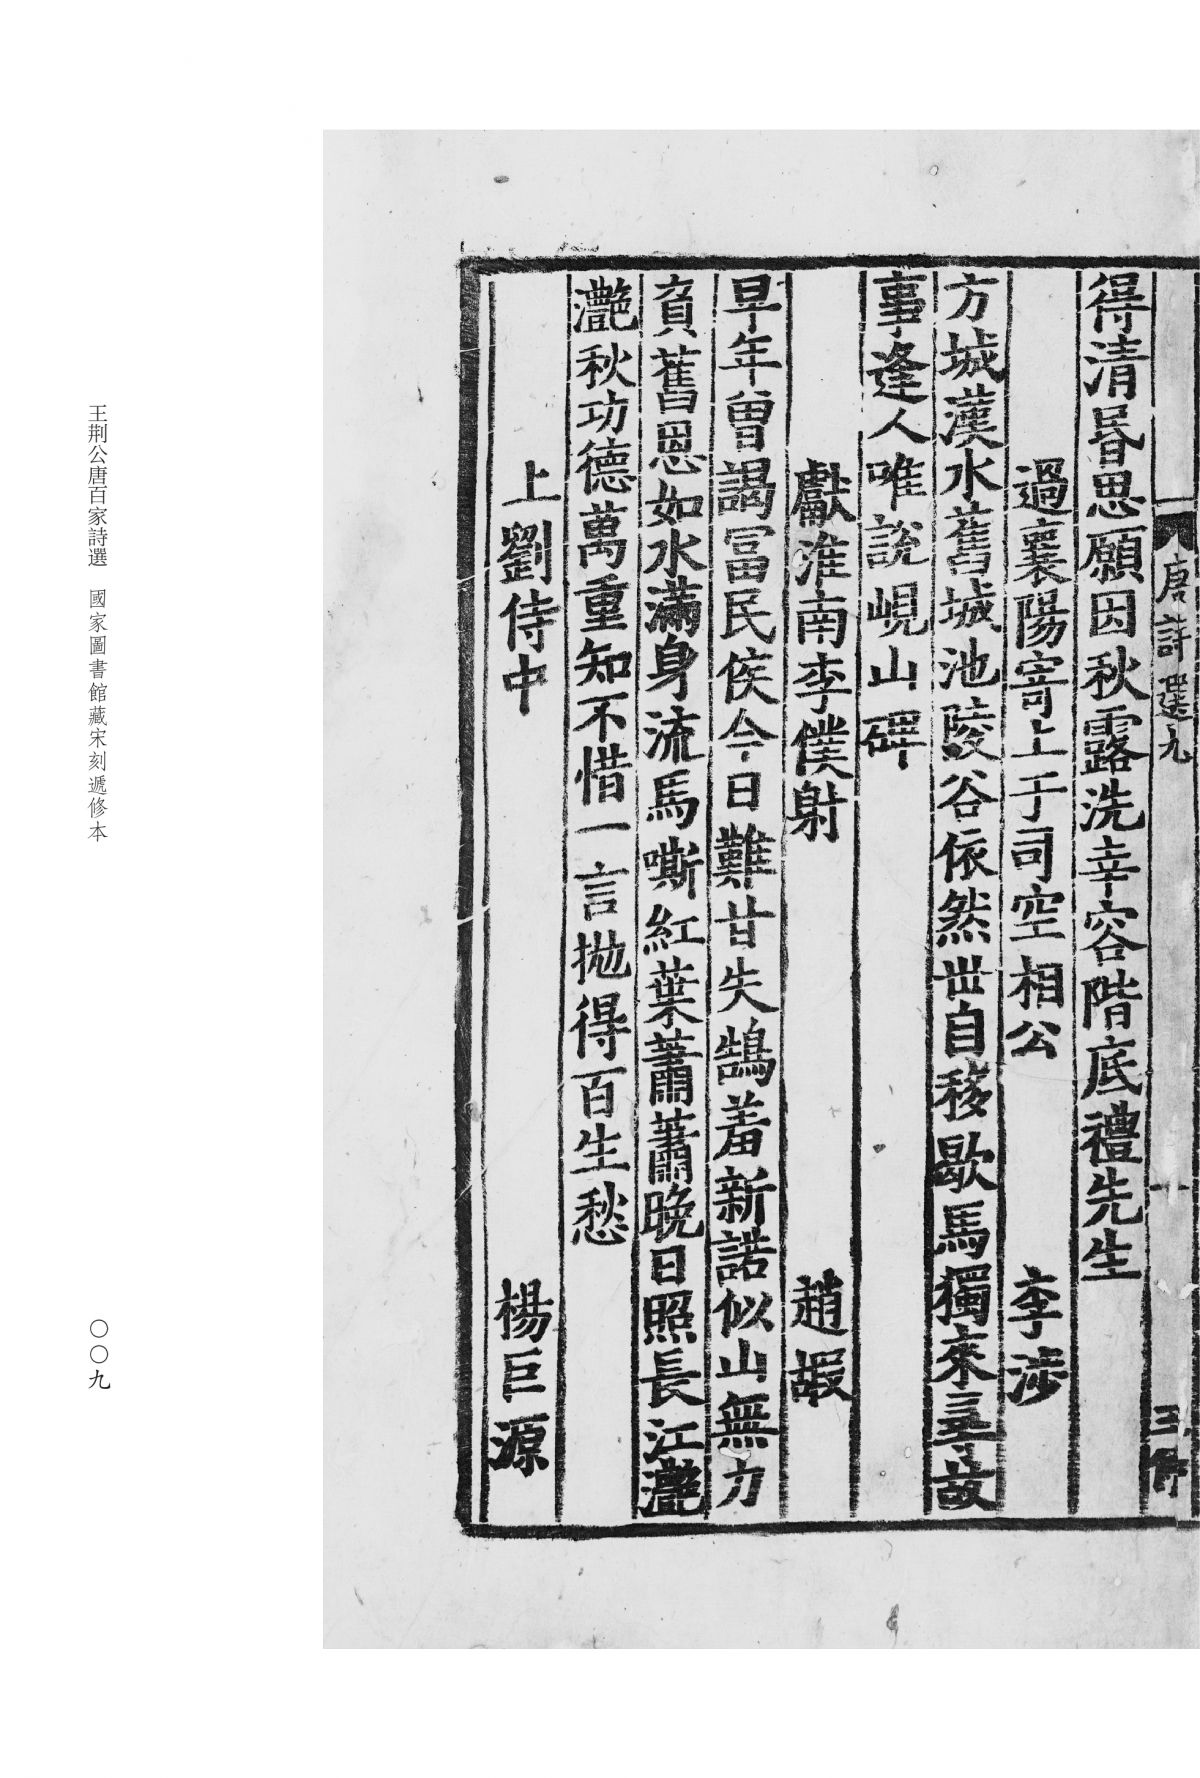 唐詩選九
一
得清昬思願因秋露洗幸容階底禮先生
過襄陽寄上于司空相公 李涉
方城漢水舊城池陵谷依然丗自移歇馬獨來尋故
事逢人唯說峴山碑
獻淮南李僕射 趙嘏
早年曾謁冨民侯今日難甘失鵠羞新諾似山無力
負舊恩如水滿身流馬嘶紅葉蕭蕭晚日照長江灔
灔秋功德萬重知不惜一言拋得百生愁
上劉侍中 楊巨源
王荆公唐百家詩選 國家圖書館藏宋刻遞修本
〇〇九